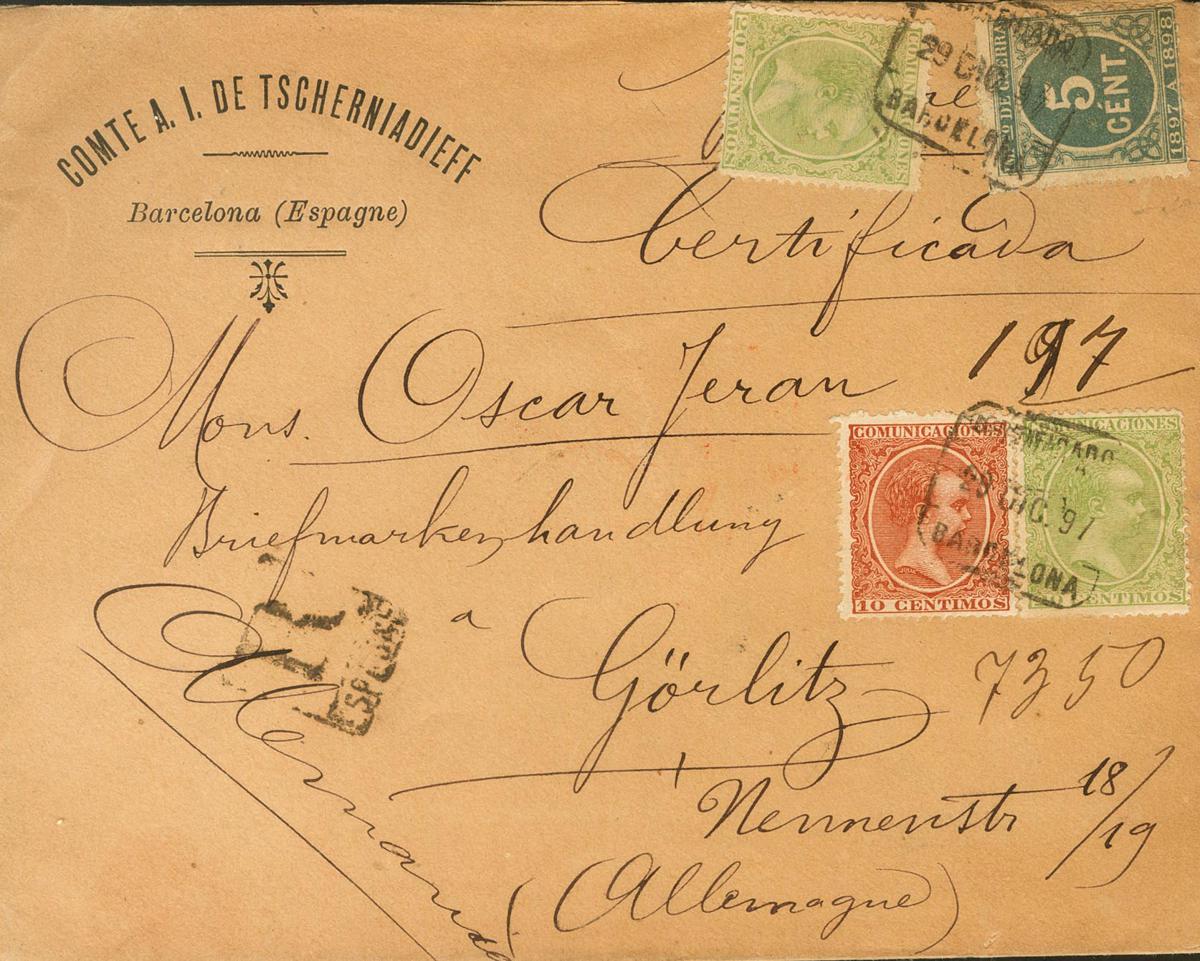 COMTE A. I. DE TSCHERNIADIEFF
Barcelona (Espagne)
20 CENTIMOS
5 CENT.
1897 A 1898
29 DIC. 97
BARCELONA
Certificada
Mons. Oscar Jeran
197
Briefmarkenhandlung
COMUNICACIONES
10 CENTIMOS
CERTIFICADO
29 DIC. 97
BARCELONA
R
a Görlitz
7350
18/19
(Allemagne)